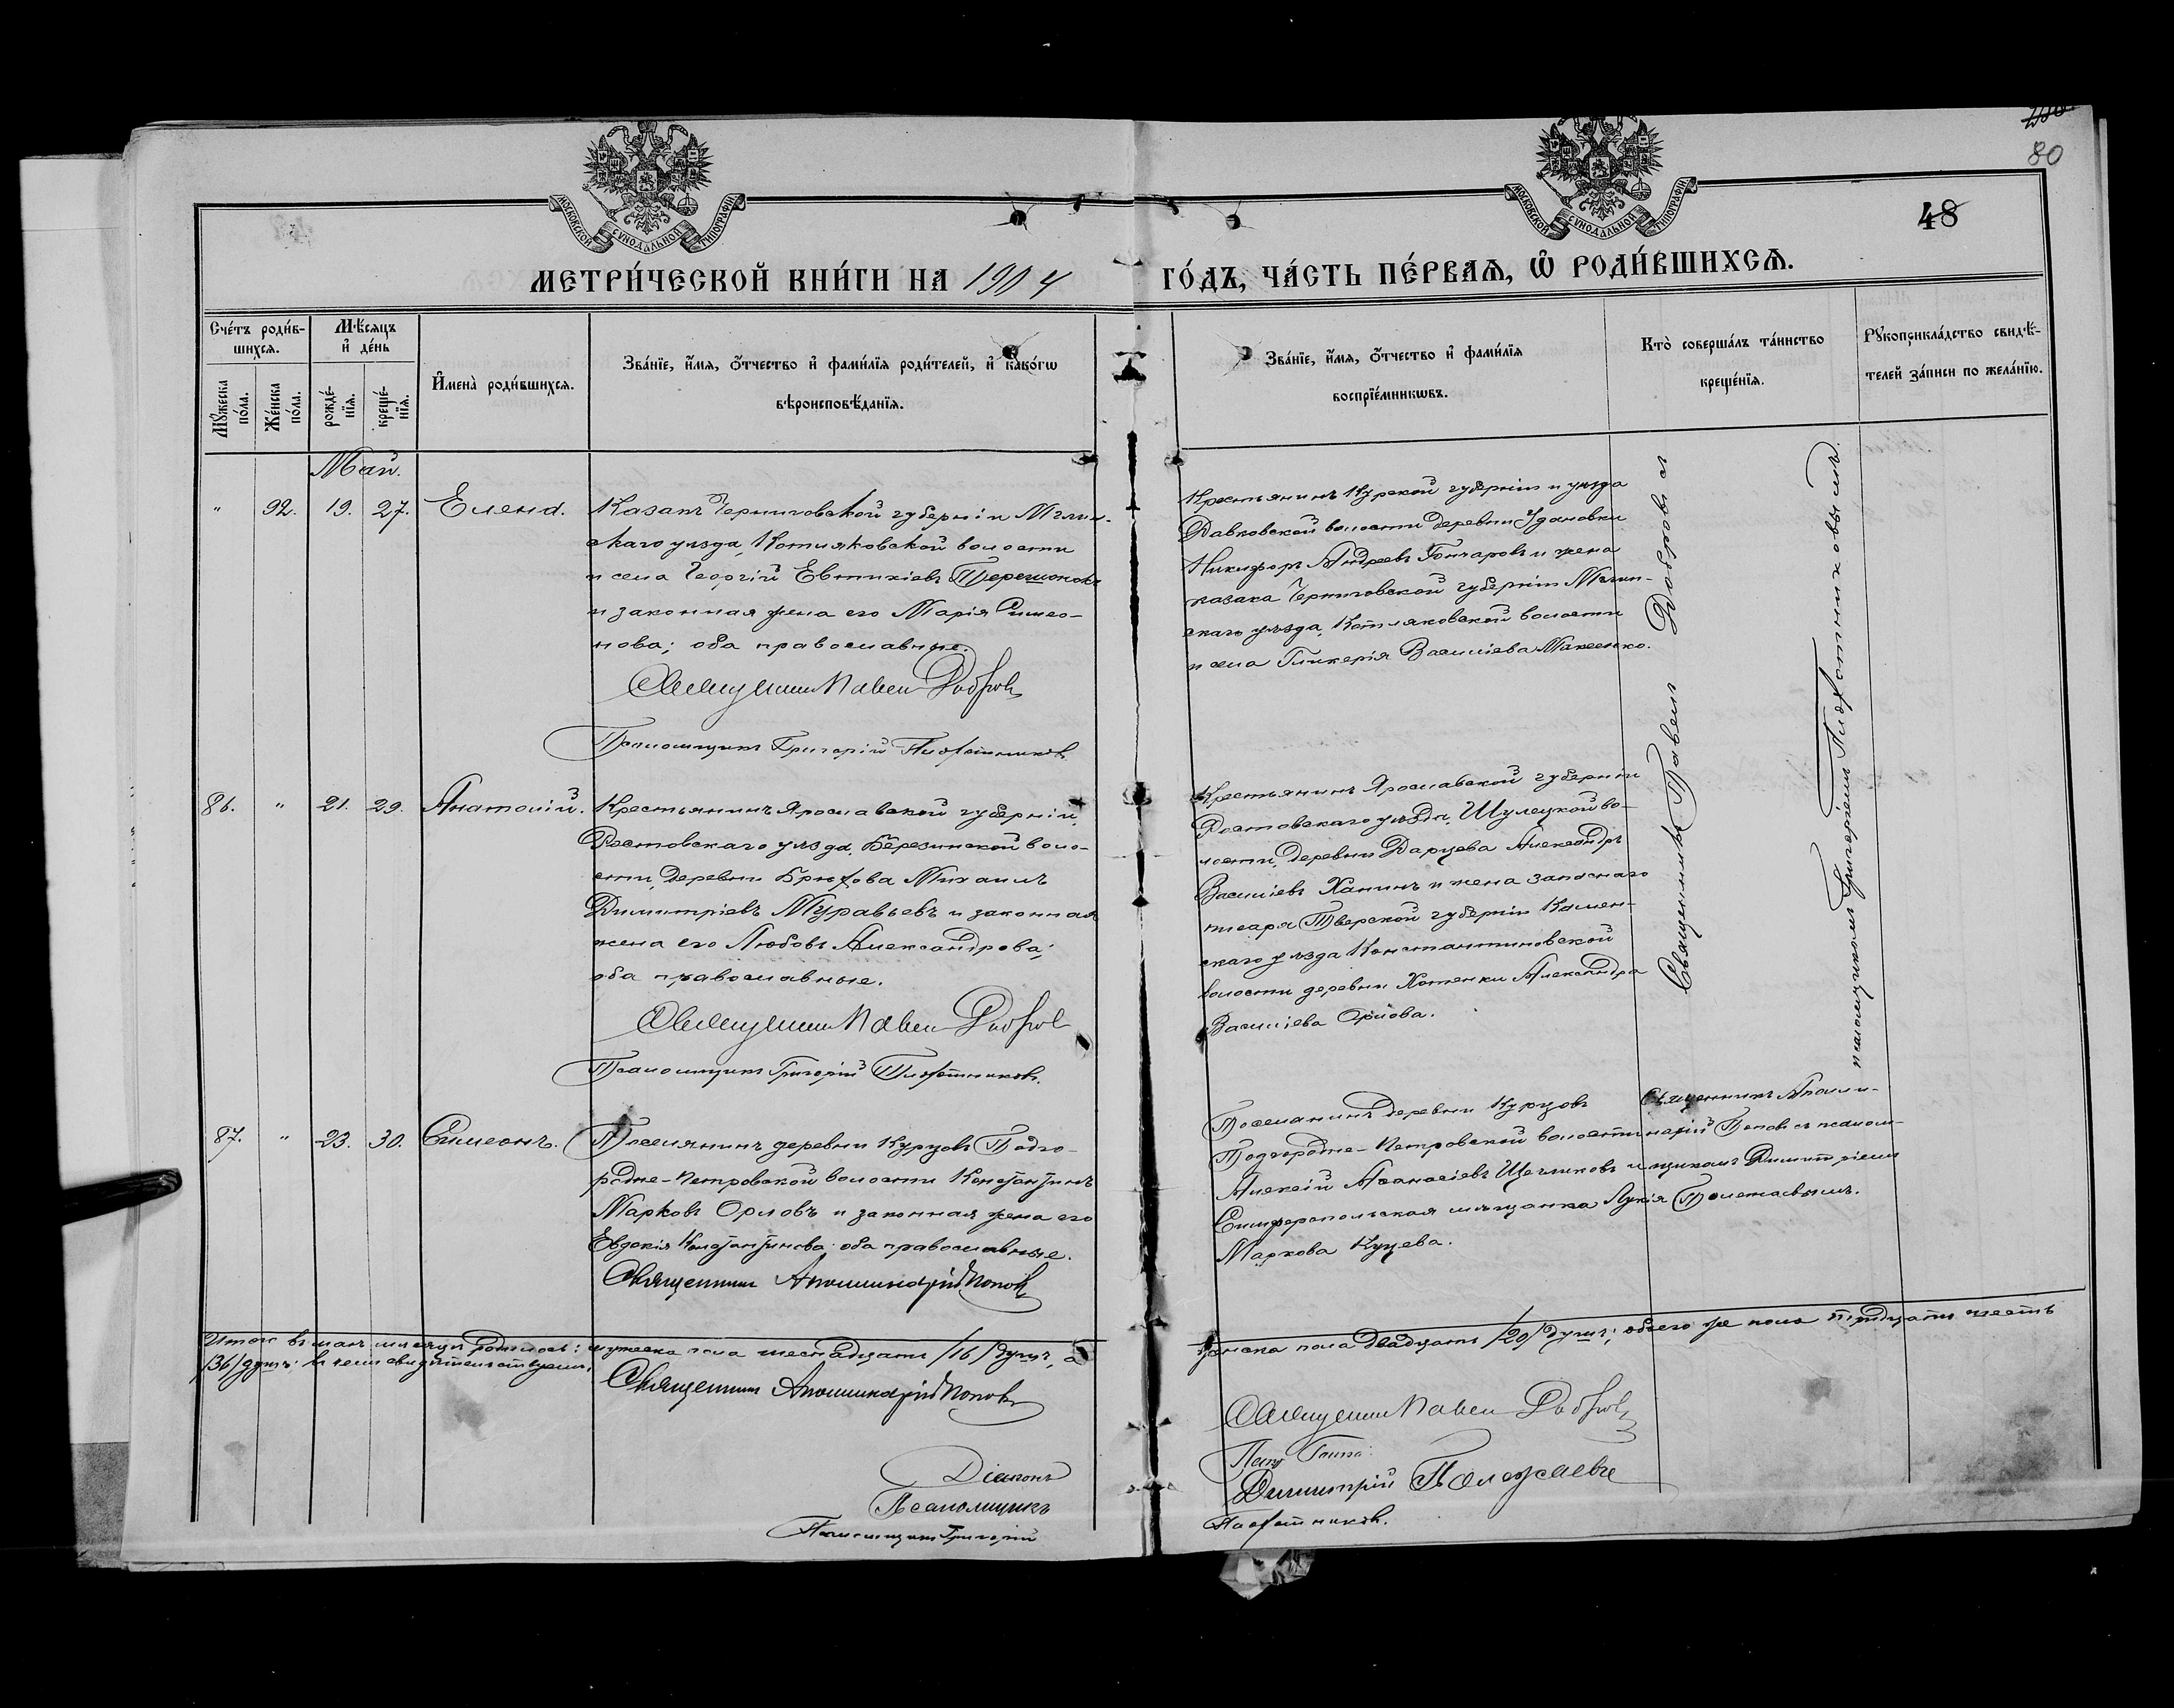 80
48
МОСКОВСКОЙ СУНОДАЛЬНОЙ ТИПОГРАФІИ
МОСКОВСКОЙ СУНОДАЛЬНОЙ ТИПОГРАФІИ
МЕТРИ́ЧЕСКОЙ КНИ́ГИ НА 1904 ГО́ДЪ, ЧА́СТЬ ПЕ́РВАѦ, Ѡ҆ РОДИ́ВШИХСѦ.
Сче́тъ роди́в-
шихсѧ.
Мꙋ́жеска по́ла.
Же́нска по́ла.
Мѣ́сѧцъ
и҆ де́нь
рожде́-
нїѧ.
креще́-
нїѧ.
И҆мена̀ роди́вшихсѧ.
Зва́нїе, и҆́мѧ, ѻ҆́тчество и҆ фами́лїѧ роди́телей, и҆ како́гѡ
вѣроисповѣ́данїѧ.
Зва́нїе, и҆́мѧ, ѻ҆́тчество и҆ фами́лїѧ
воспрїе́мникѡвъ.
Кто̀ соверша́лъ та́инство
креще́нїѧ.
Рꙋкоприкла́дство свидѣ́-
телей за́писи по жела́нїю.
Май.
" 92. 19. 27. Елена.
Казакъ Черниговской губерніи Мглин-
скаго уѣзда, Котляковской волости
и села Георгій Евтихіевъ
и законная жена его Марія Симео-
нова; оба православные.
Священникъ Павелъ Добровъ
Псаломщикъ Григорій Плотниковъ
Крестьянинъ Курской губерніи и уѣзда
волости деревни Ждановки
Никифоръ Андреевъ Гончаровъ и жена
казака Черниговской губерніи Мглин-
скаго уѣзда, Котляковской волости
и села Гликерія Василіева Макеенко.
Священникъ Павелъ Добровъ съ
псаломщикомъ Григоріемъ Плотниковымъ.
86. " 21. 29. Анатолій.
Крестьянинъ Ярославской губерніи,
Ростовскаго уѣзда, Березинской воло-
сти, деревни Брюхова Михаилъ
Димитріевъ Муравьевъ и законная
жена его Любовь Александрова;
оба православные.
Священникъ Павелъ Добровъ
Псаломщикъ Григорій Плотниковъ.
Крестьянинъ Ярославской губерніи
Ростовскаго уѣзда, Шулецкой во-
лости, деревни Дарцева Александръ
Василіевъ Ханинъ и жена запаснаго
писаря Тверской губерніи
скаго уѣзда Константиновской
волости деревни Хотенки Александра
Василіева Орлова.
87. " 23. 30. Симеонъ.
Поселянинъ деревни Курцовъ Подго-
родне-Петровской волости Константинъ
Марковъ Орловъ и законная жена его
Евдокія Константинова; оба православные.
Священникъ Аполлинарій Поповъ
Поселянинъ деревни Курцовъ
Подгородне-Петровской волости
Алексій Аѳанасіевъ Щегликовъ и
Симферопольская мѣщанка Лукія
Маркова Куцева.
Священникъ Аполли-
нарій Поповъ съ псалом-
щикомъ Димитріемъ
Полежаевымъ.
Итого въ маѣ мѣсяцѣ родилось: мужеска пола шестнадцать /16/ душъ, а женска пола двадцать /20/ душъ; обоего же пола тридцать шесть
/36/ душъ: въ чемъ свидѣтельствуемъ:
Священникъ Аполлинарій Поповъ
Священникъ Павелъ Добровъ
Діаконъ
Псаломщикъ Димитрій Полежаевъ
Псаломщикъ Григорій Плотниковъ.